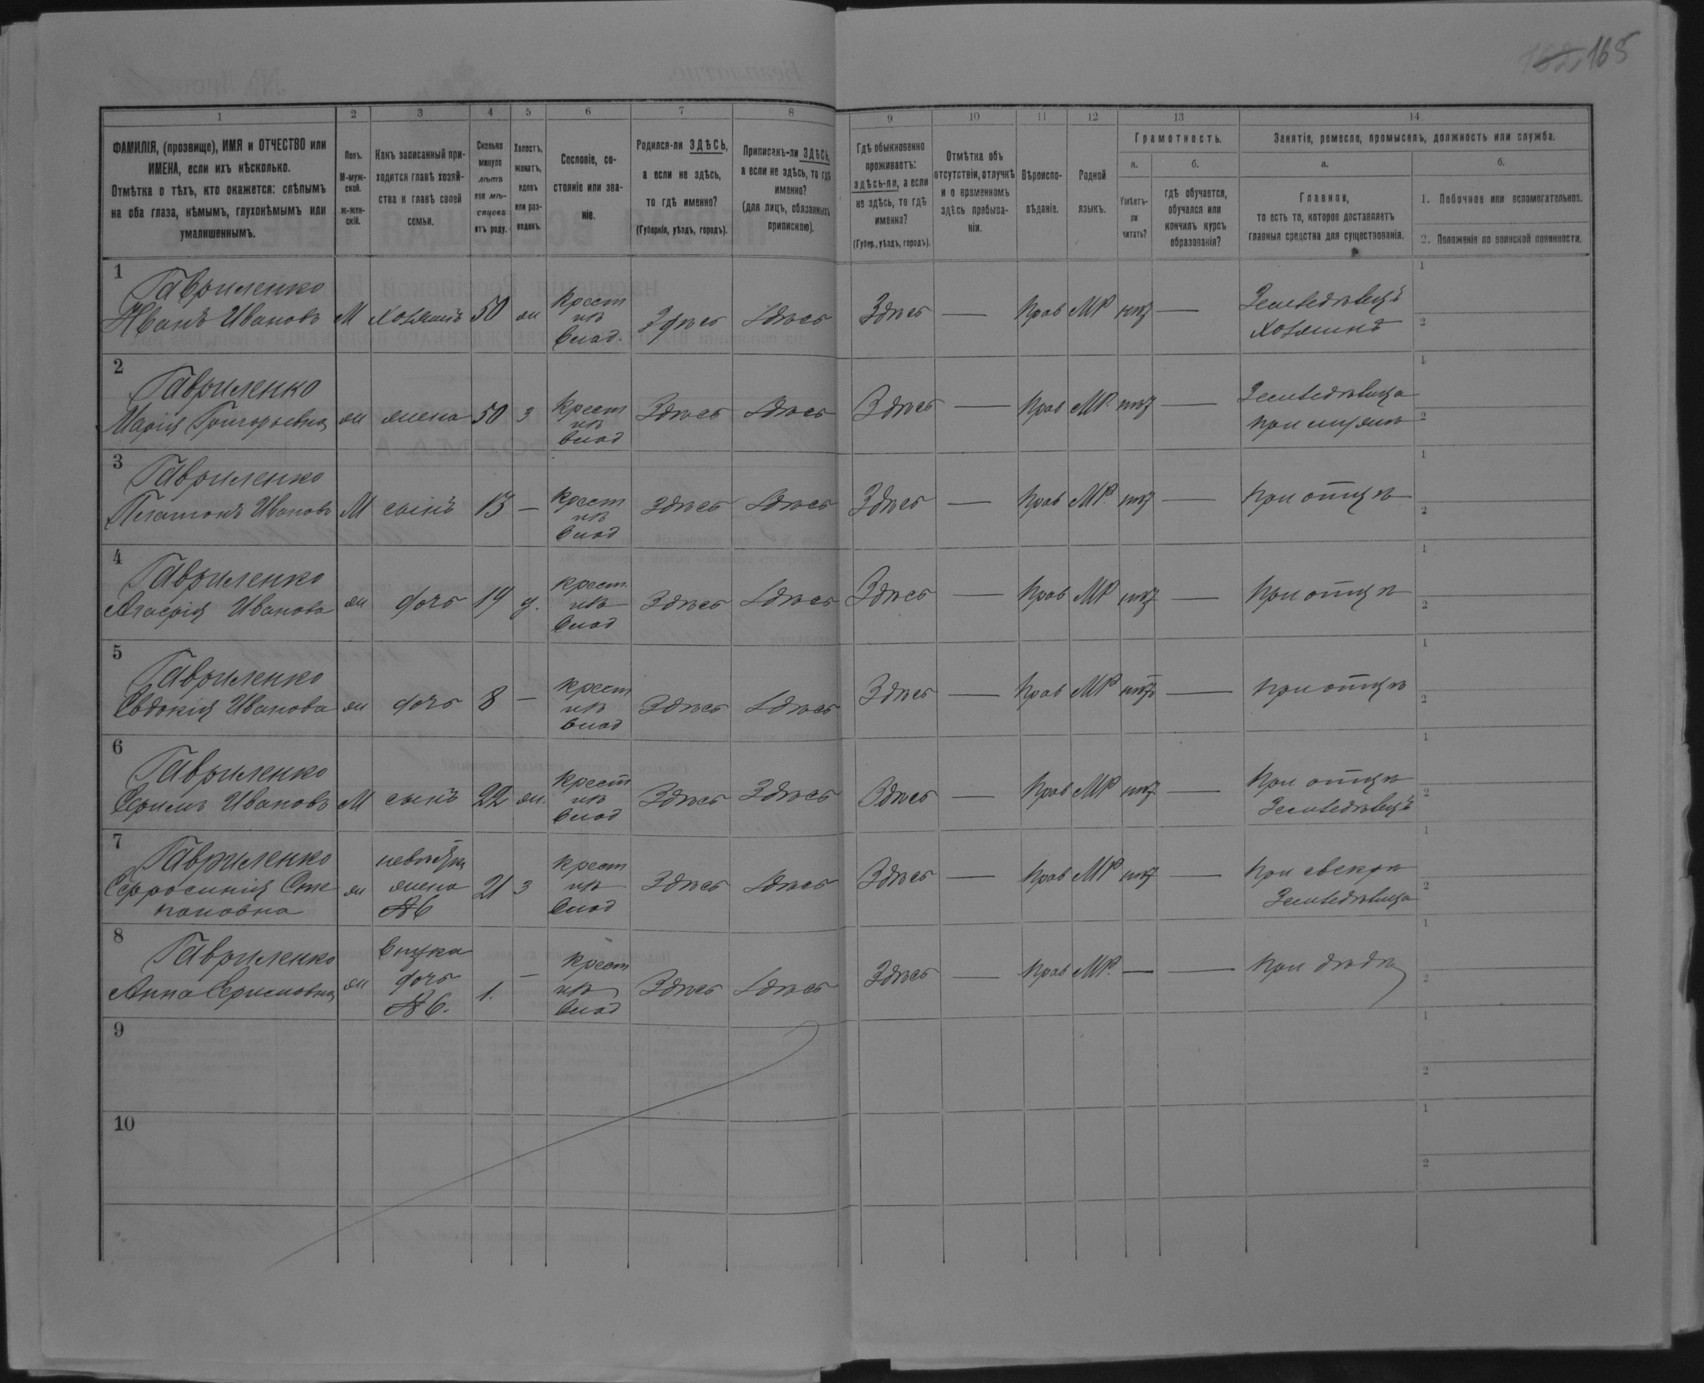 165
1 2 3 4 5 6 7 8 9 10 11 12 13 14
ФАМИЛІЯ, (прозвище), ИМЯ и ОТЧЕСТВО или
ИМЕНА, если ихъ нѣсколько.
Отмѣтка о тѣхъ, кто окажется: слѣпымъ
на оба глаза, нѣмымъ, глухонѣмымъ или
умалишеннымъ.
Полъ.
М-муж-
ской.
ж-жен-
скій.
Какъ записанный при-
ходится главѣ хозяй-
ства и главѣ своей
семьи.
Сколько
минуло
лѣтъ
или мѣ-
сяцевъ
отъ роду.
Холостъ,
женатъ,
вдовъ
или раз-
веденъ.
Сословіе, со-
стояніе или зва-
ніе.
Родился-ли ЗДѢСЬ,
а если не здѣсь,
то гдѣ именно?
(Губернія, уѣздъ, городъ).
Приписанъ-ли ЗДѢСЬ,
а если не здѣсь, то гдѣ
именно?
(для лицъ, обязанныхъ
припискою).
Гдѣ обыкновенно
проживаетъ:
здѣсь-ли, а если
не здѣсь, то гдѣ
именно?
(Губер., уѣздъ, городъ).
Отмѣтка объ
отсутствіи, отлучкѣ
и о временномъ
здѣсь пребыва-
ніи.
Вѣроиспо-
вѣданіе.
Родной
языкъ.
Грамотность.
а.
Умѣетъ-
ли
читать?
б.
гдѣ обучается,
обучался или
кончилъ курсъ
образованія?
Занятіе, ремесло, промыселъ, должность или служба.
а.
Главное,
то есть то, которое доставляетъ
главныя средства для существованія.
б.
1. Побочное или вспомогательное.
2. Положеніе по воинской повинности.
1
Гавриленко
Иванъ Ивановъ М хозяинъ 50 ж Крест
изъ
влад. Здѣсь Здѣсь Здѣсь — Прав МР нѣт — Земледѣлецъ
Хозяинъ
1
2
2
Гавриленко
Марія Григорьевна ж жена 50 з Крест
изъ
влад Здѣсь Здѣсь Здѣсь — Прав МР. нѣт — Земледѣлица
при мужѣ
1
2
3
Гавриленко
Платонъ Ивановъ М сынъ 13 — Крест
изъ
влад Здѣсь Здѣсь Здѣсь — Прав МР. нѣт — При отцѣ
1
2
4
Гавриленко
Агафія Иванова ж дочь 19 д. Крест
изъ
влад Здѣсь Здѣсь Здѣсь — Прав МР нѣт — При отцѣ
1
2
5
Гавриленко
Евдокія Иванова ж дочь 8 — Крест
изъ
влад Здѣсь Здѣсь Здѣсь — Прав МР нѣтъ — При отцѣ
1
2
6
Гавриленко
Ефимъ Ивановъ М сынъ 22 ж. Крест
изъ
влад Здѣсь Здѣсь Здѣсь — Прав МР нѣт — При отцѣ
Земледѣлецъ
1
2
7
Гавриленко
Ефросинія Сте
пановна ж невѣстка
жена
№6 21 з Крест
изъ
влад Здѣсь Здѣсь Здѣсь — Прав МР нѣт — При свекрѣ
Земледѣлица
1
2
8
Гавриленко
Анна Ефимовна ж Внучка
дочь
№6. 1. — Крест
изъ
влад Здѣсь Здѣсь Здѣсь — Прав МР. — — При дѣдѣ
1
2
9
1
2
10
1
2